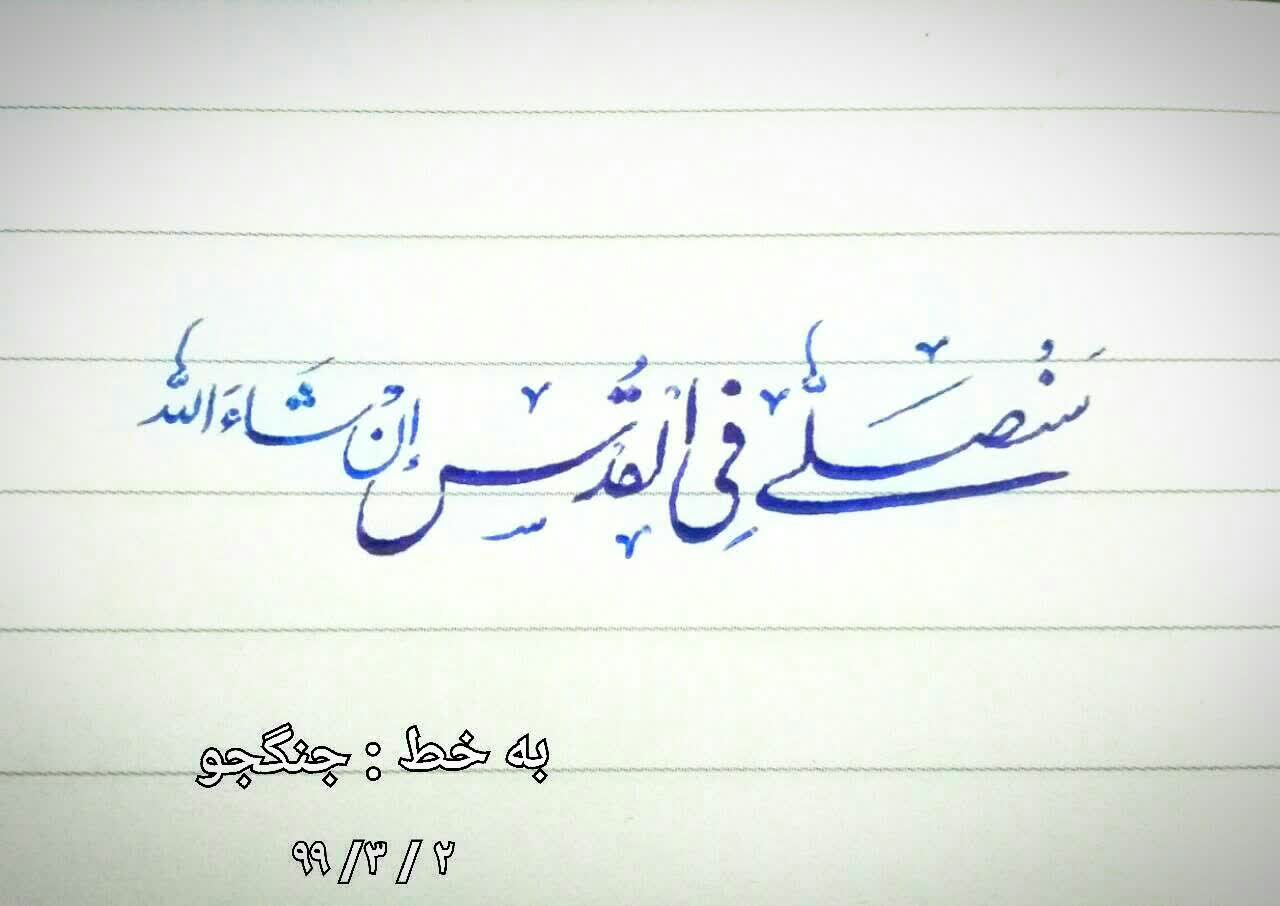 سَنُصَلّے فِی القُدسِ إنْ شَاءَ اللّٰه
به خط : جنگجو
۲ / ۳/ ۹۹